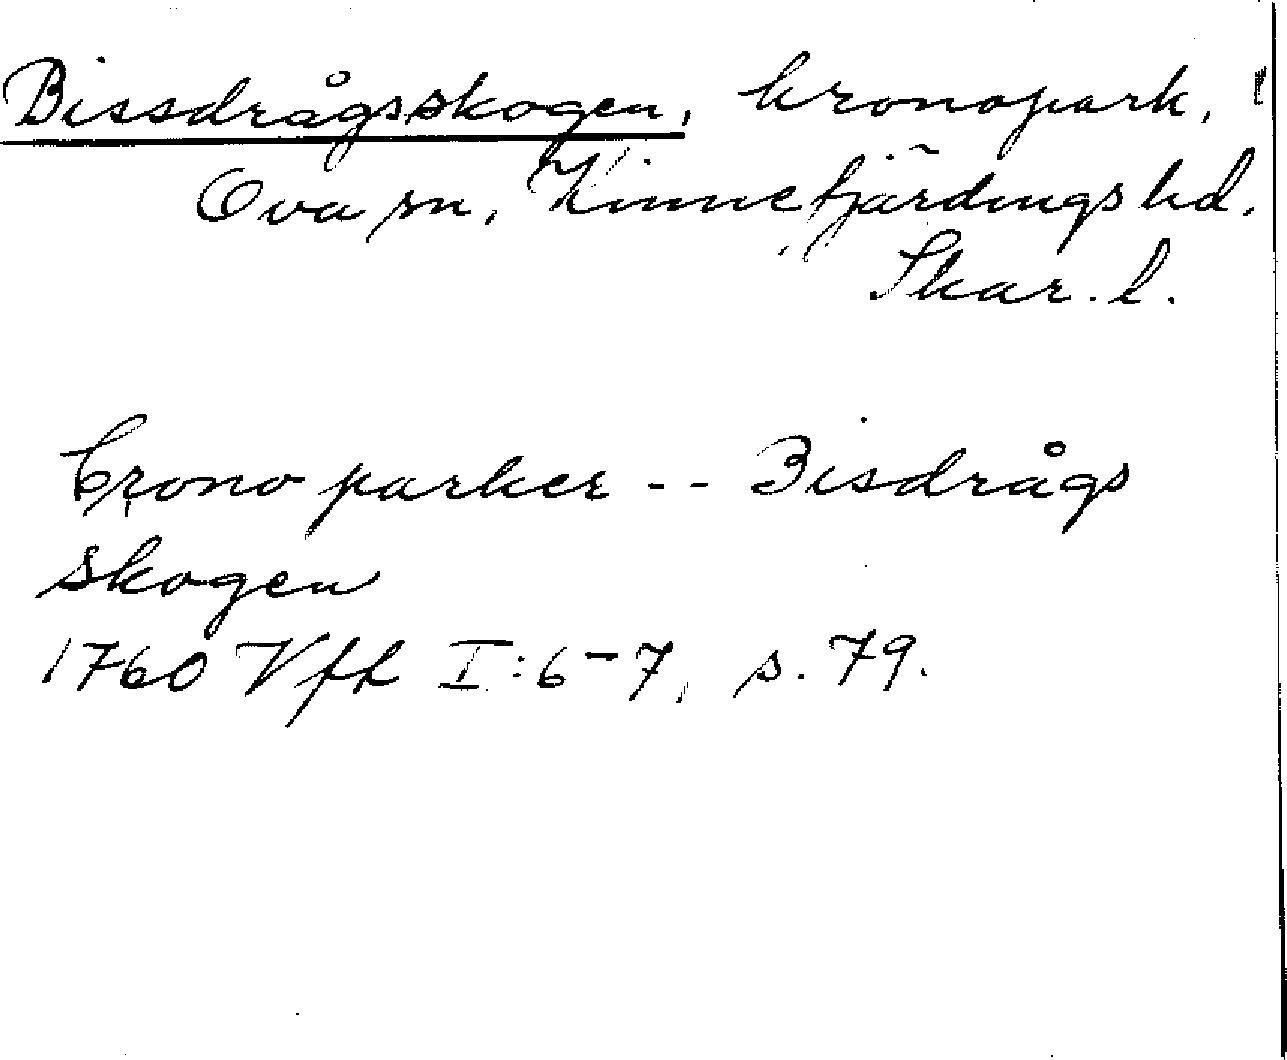 Bissdrågsskogen, kronopark,
Ova sn, Kinnefjärdings hd.
Skar. l.
Crono parker -- Bisdrågs
skogen
1760 Vfh I:6-7, s. 79.